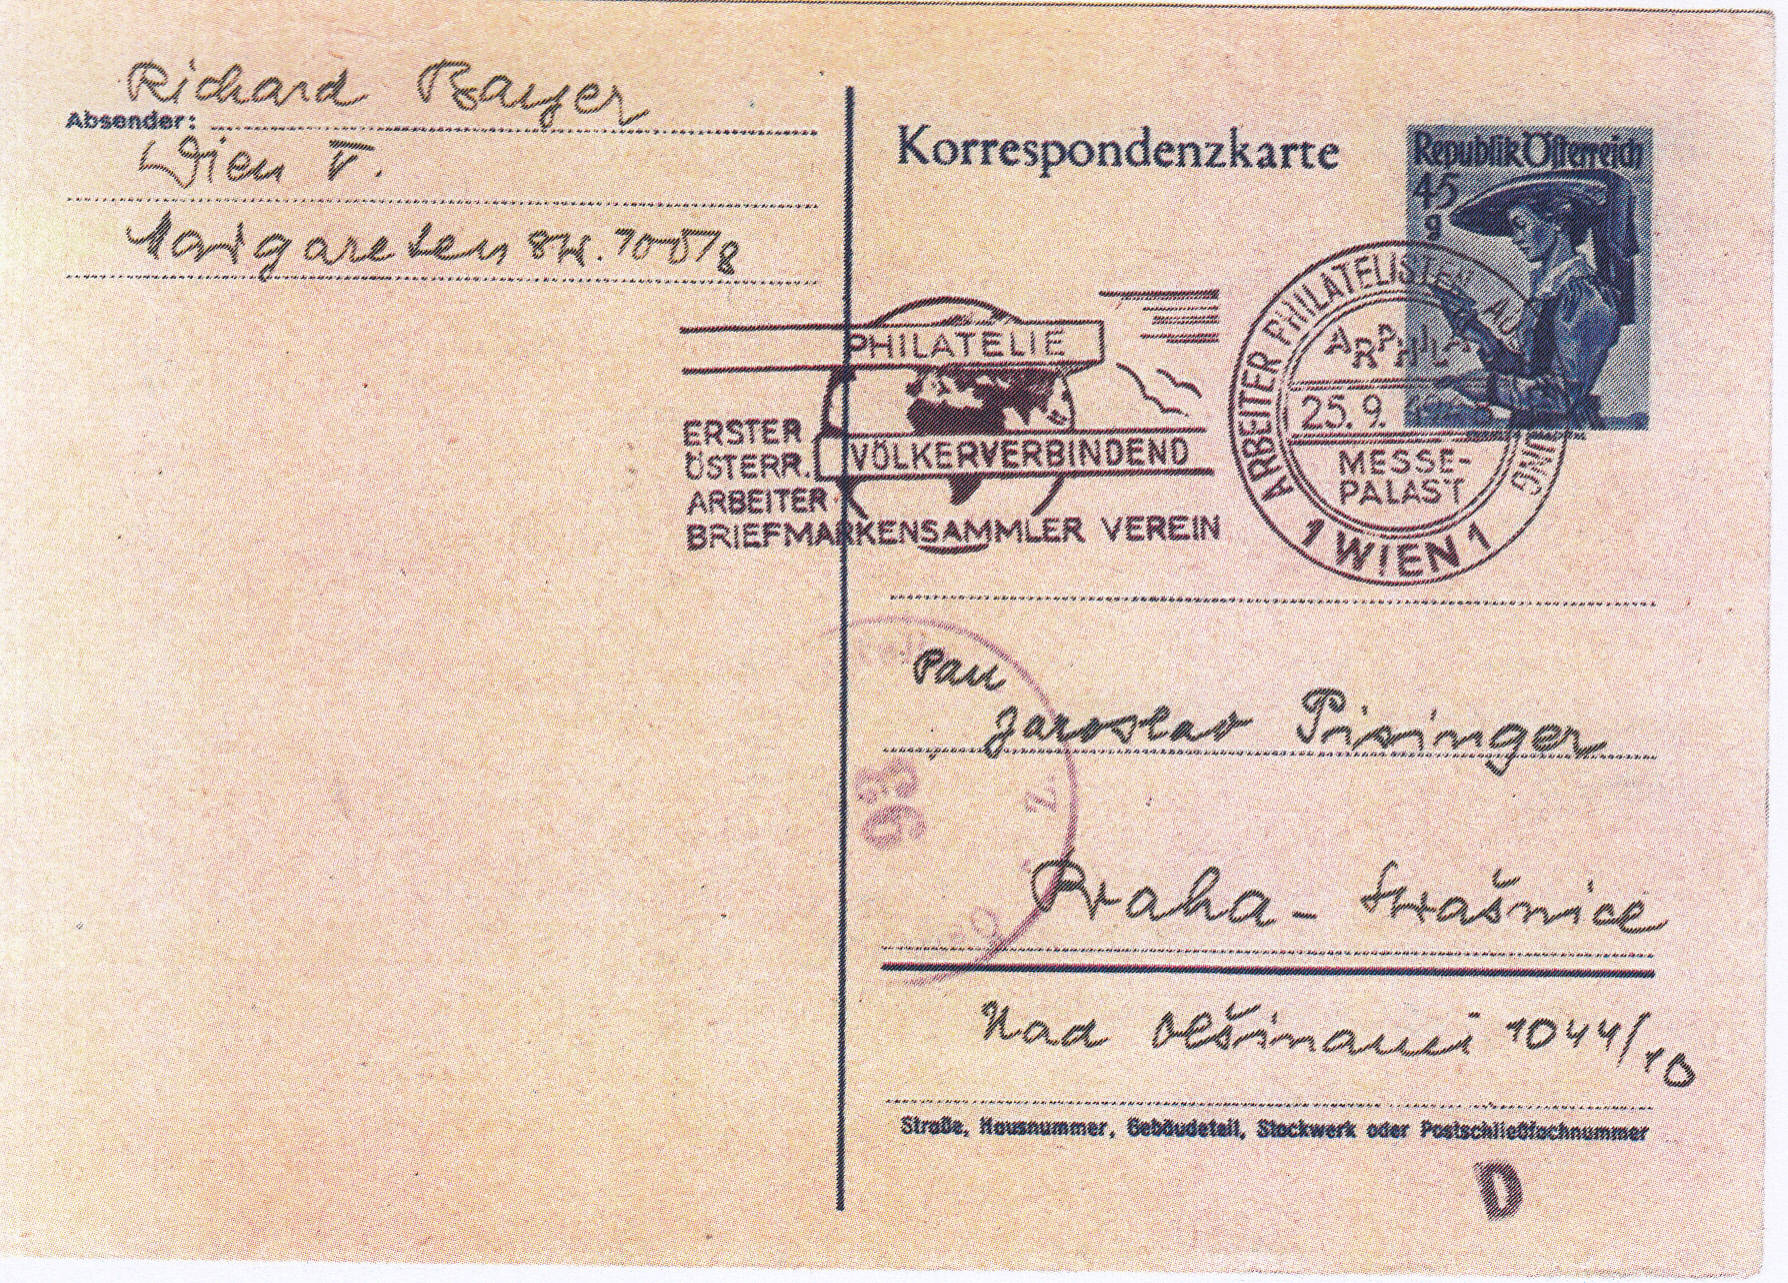 Richard Bayer
Absender:
Wien V.
Margareten str. 100/8
Korrespondenzkarte
Republik Österreich
45
g
PHILATELIE
ERSTER
ÖSTERR.
VÖLKERVERBINDEND
ARBEITER
BRIEFMARKENSAMMLER VEREIN
ARBEITER PHILATELISTEN
ARPHILA
25.9.
MESSE-
PALAST
1 WIEN 1
Pan
Jaroslav Pisinger
93
Z.
Praha - Strašnice
Nad Olšinami 1044/10
Straße, Hausnummer, Gebäudeteil, Stockwerk oder Postschließfachnummer
D